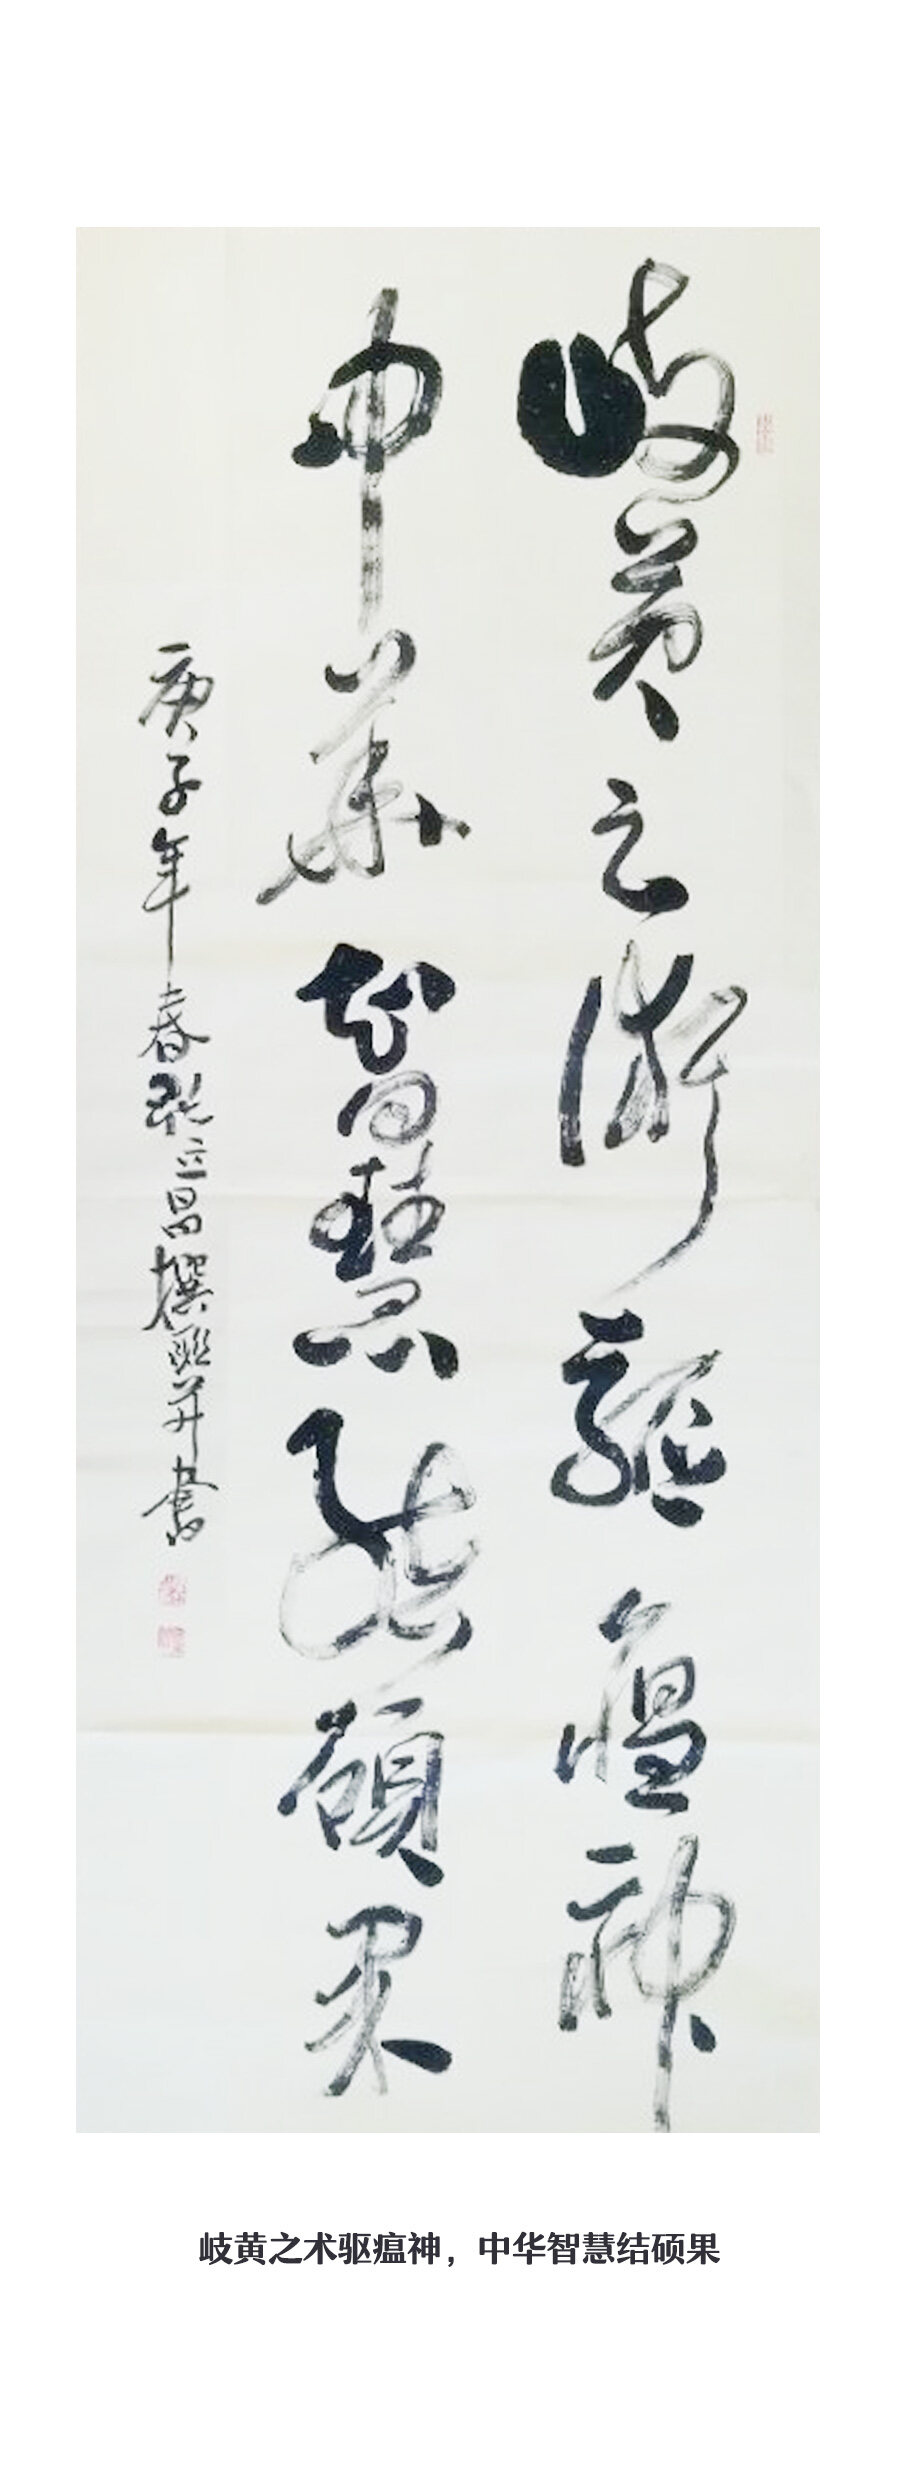 岐黄之術驅瘟神
中華智慧結碩果
庚子年春 立昌撰聯并書
岐黄之术驱瘟神，中华智慧结硕果